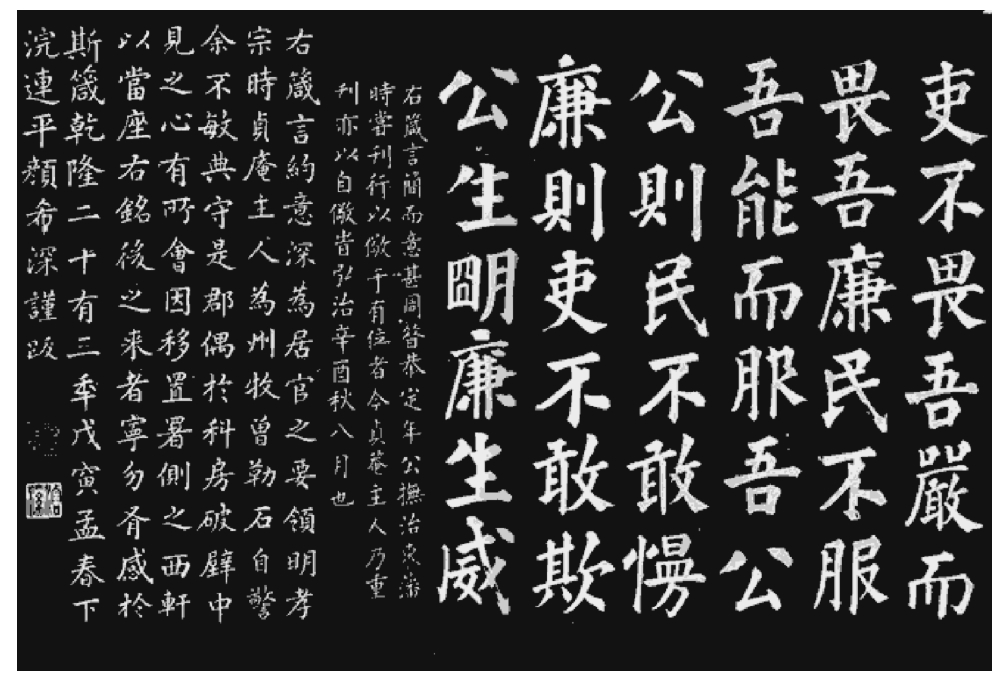 吏不畏吾嚴而
畏吾廉民不服
吾能而服吾公
公則民不敢慢
廉則吏不敢欺
公生朙廉生威
右箴言簡而意甚周昝恭定年公撫治東藩
時嘗刊行以儆于有位者今貞菴主人乃重
刊亦以自儆旹弘治辛酉秋八月也
右箴言約意深為居官之要領明孝
宗時貞庵主人為州牧曾勒石自警
余不敏典守是郡偶於科房破壁中
見之心有所會因移置署側之西軒
以當座右銘後之来者寧勿胥感於
斯箴乾隆二十有三秊戊寅孟春下
浣連平顏希深謹跋